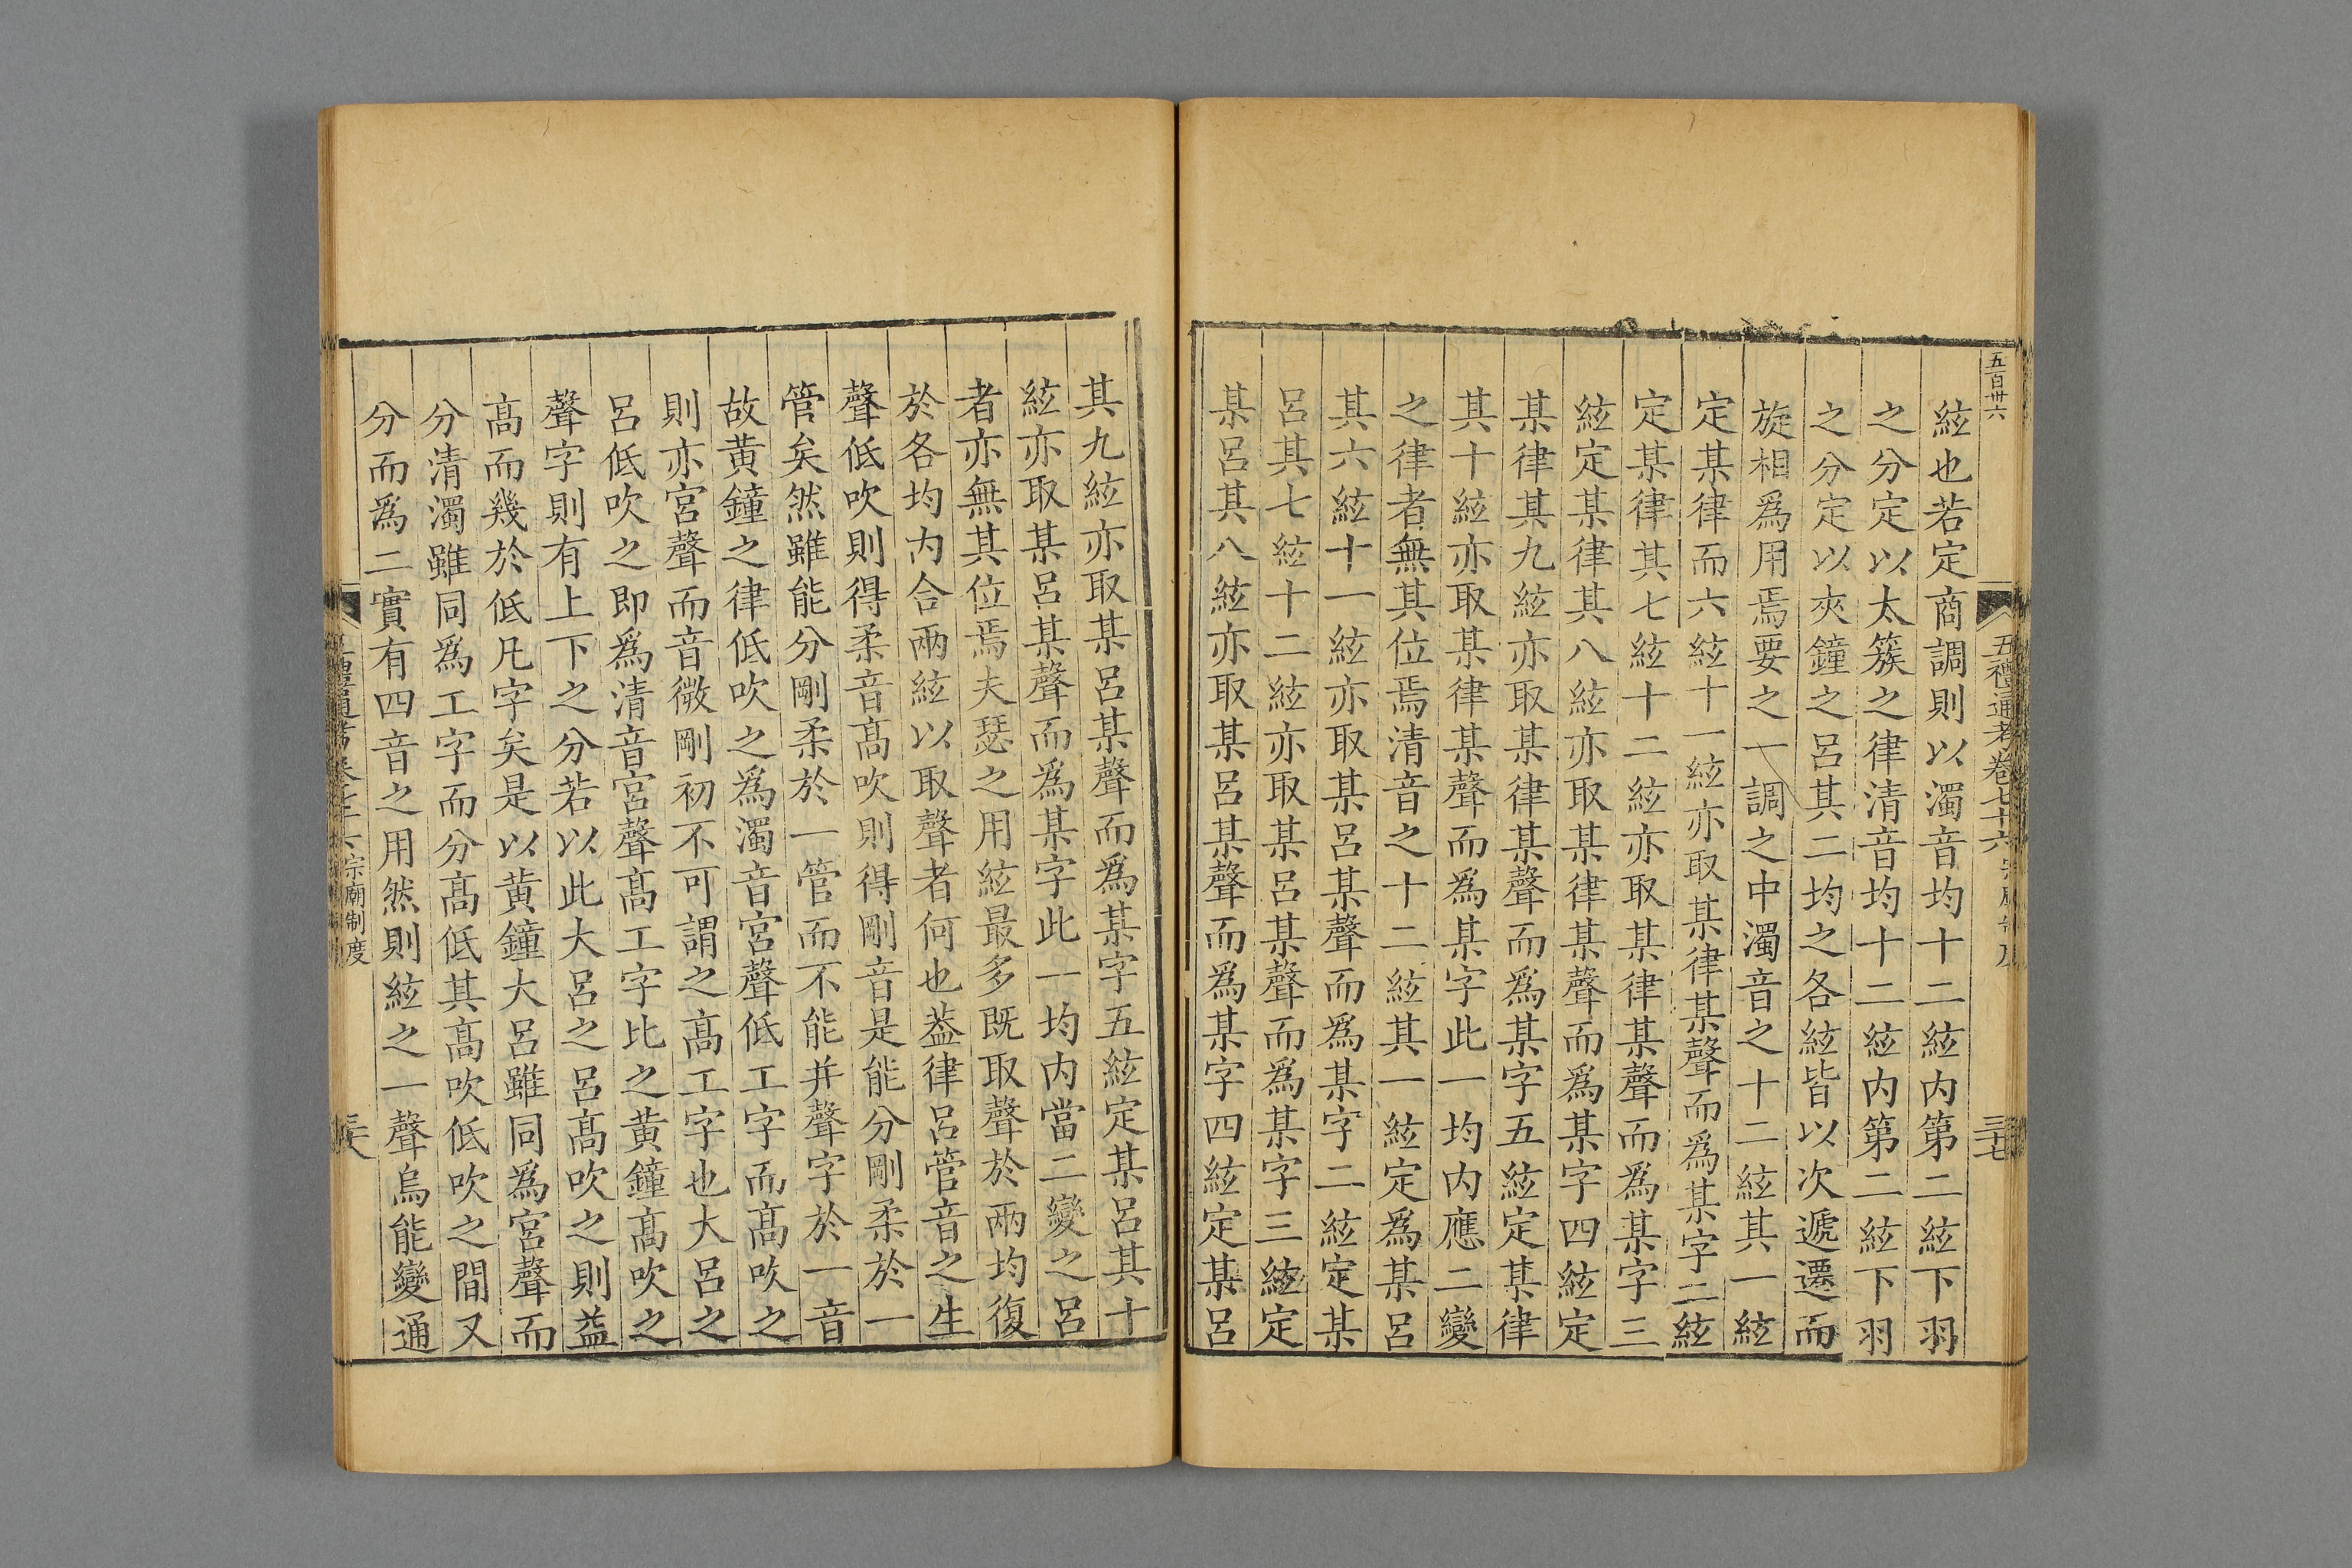 五百卅六
五禮通考卷七十六
三十七
絃也若定商調則以濁音均十二絃内第二絃下羽
之分定以太簇之律清音均十二絃内第二絃下羽
之分定以夾鐘之呂其二均之各絃皆以次遞遷而
旋相爲用焉要之一調之中濁音之十二絃其一絃
定某律而六絃十一絃亦取某律某聲而爲某字二絃
定某律其七絃十二絃亦取某律某聲而爲某字三
絃定某律其八絃亦取某律某聲而爲某字四絃定
某律其九絃亦取某律某聲而爲某字五絃定某律
其十絃亦取某律某聲而爲某字此一均内應二變
之律者無其位焉清音之十二絃其一絃定爲某呂
其六絃十一絃亦取某呂某聲而爲某字二絃定某
呂其七絃十二絃亦取某呂某聲而爲某字三絃定
某呂其八絃亦取某呂某聲而爲某字四絃定某呂
其九絃亦取某呂某聲而爲某字五絃定某呂其十
絃亦取某呂某聲而爲某字此一均内當二變之呂
者亦無其位焉夫瑟之用絃最多既取聲於兩均復
於各均内合兩絃以取聲者何也葢律呂管音之生
聲低吹則得柔音髙吹則得剛音是能分剛柔於一
管矣然雖能分剛柔於一管而不能并聲字於一音
故黄鐘之律低吹之爲濁音宮聲低工字而髙吹之
則亦宮聲而音微剛初不可謂之髙工字也大呂之
呂低吹之即爲清音宮聲髙工字比之黄鐘髙吹之
聲字則有上下之分若以此大呂之呂髙吹之則益
髙而幾於低凡字矣是以黄鐘大呂雖同爲宮聲而
分清濁雖同爲工字而分髙低其髙吹低吹之間又
分而爲二實有四音之用然則絃之一聲烏能變通
宗廟制度